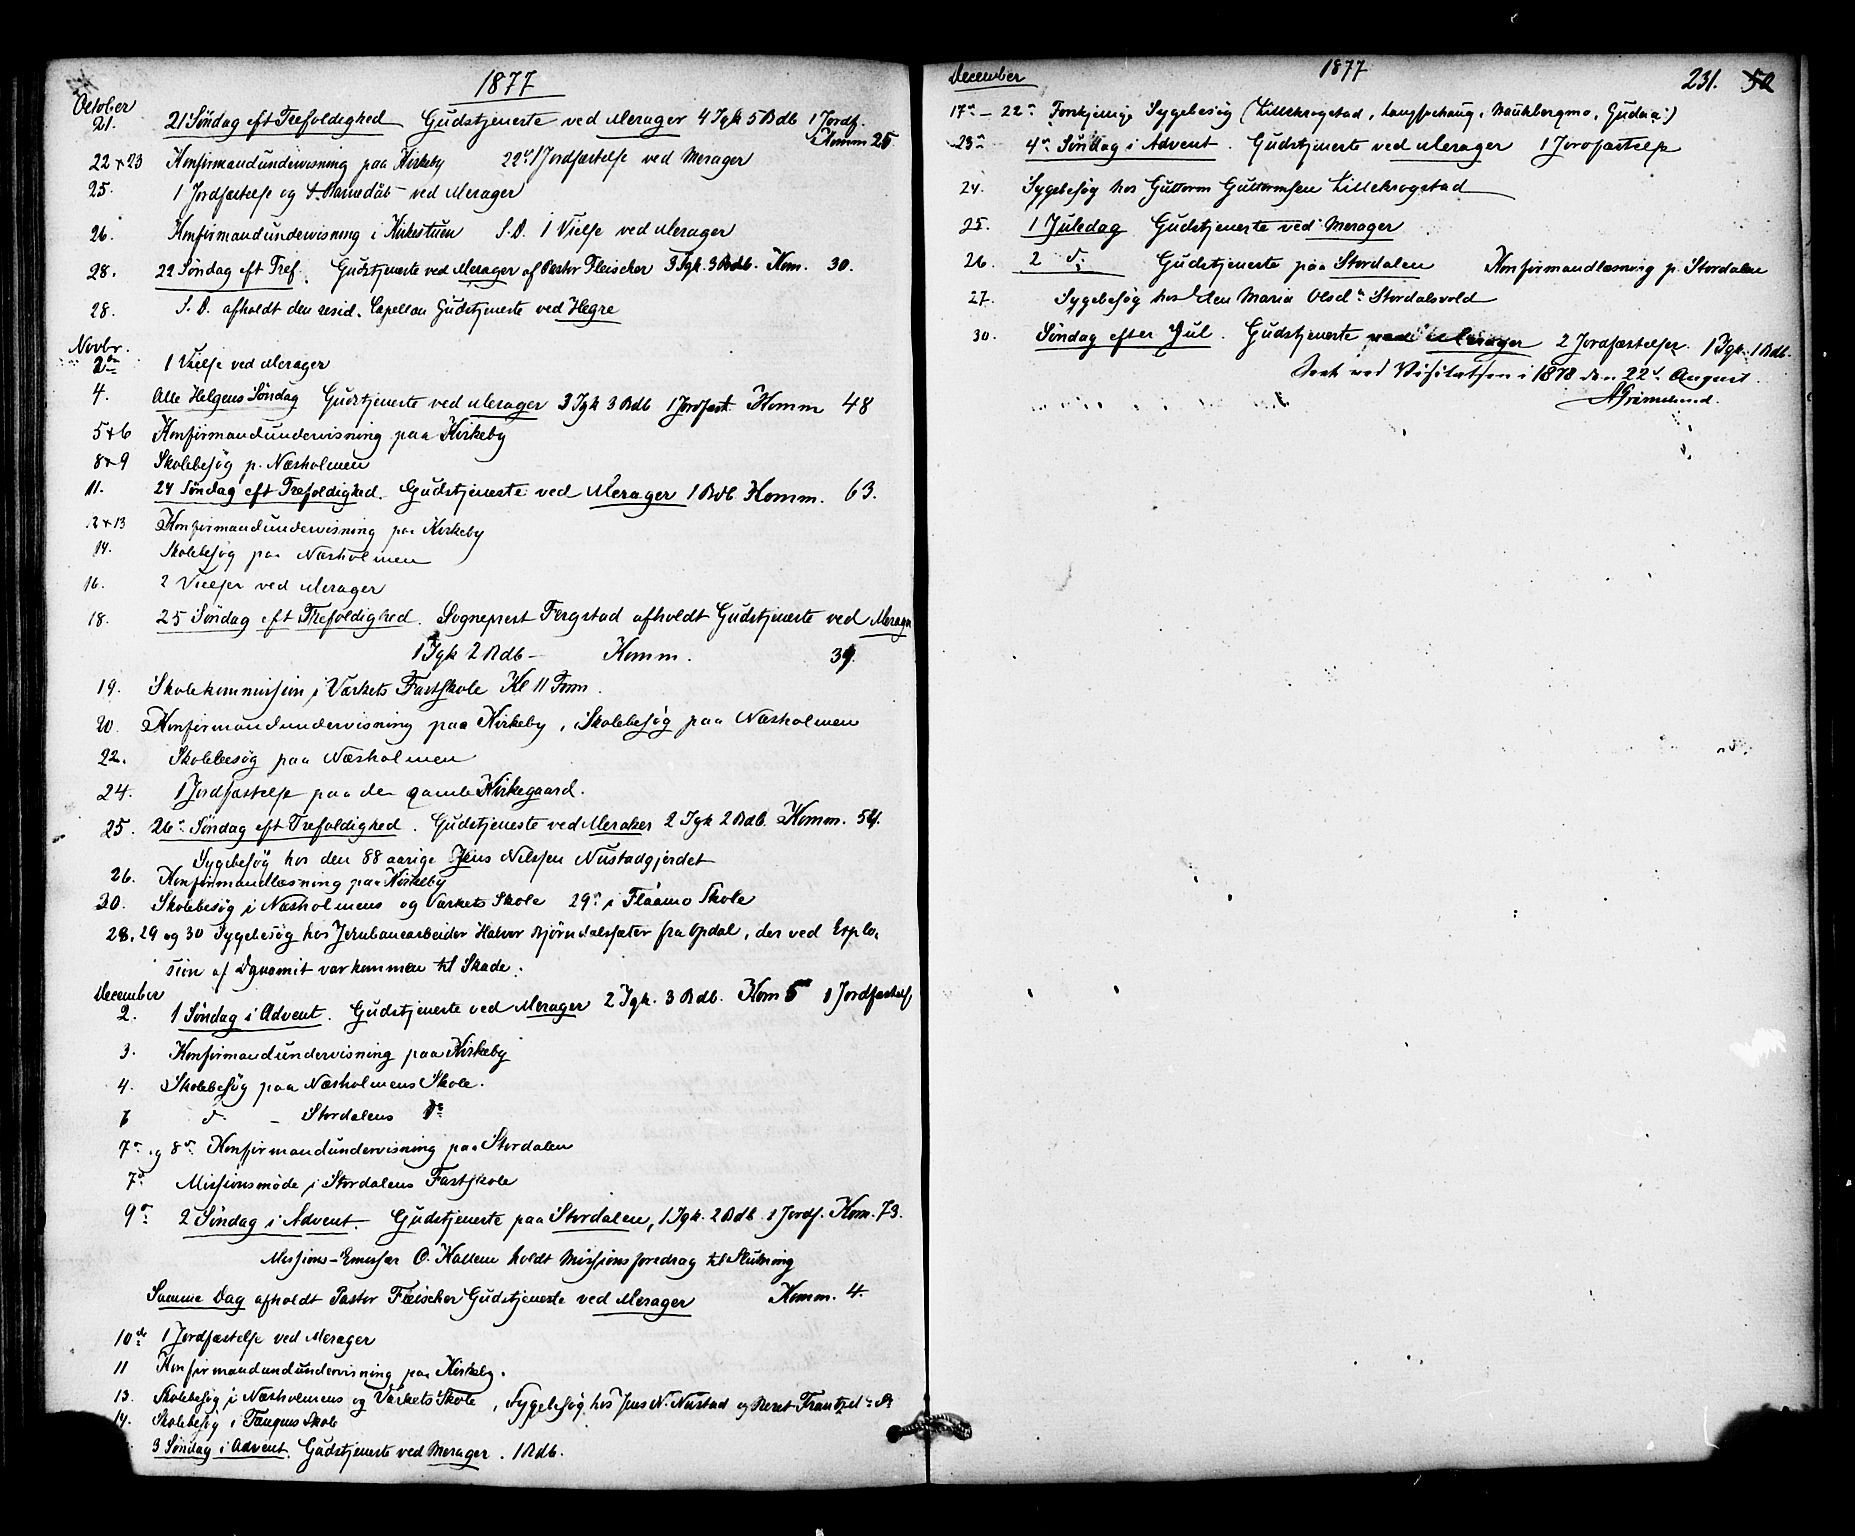 1877
October
21. 21 Söndag eft Trefoldighed Gudstjeneste ved Merager 4 Igk 5 Bdb 1 Jordf.
Komm 25
22 + 23 Konfirmandundervisning paa Kirkeby 22de 1 Jordfæstelse ved Merager
25. 1 Jordfæstelse og ved Merager
26. Konfirmandundervisning i Kirkestuen S.D. 1 Vielse ved Merager
28. 22 Söndag eft Tref. Gudstjeneste ved Merager af Pastor Fleischer 3 Igk. 3 Bdb. Kom. 30.
28. S.D. afholdt den resid. Capellan Gudstjeneste ved Hegre
Novbr.
2den 1 Vielse ved Merager
4. Alle Helgens Söndag Gudstjeneste ved Merager 3 Igk 3 Bdb 1 Jordfæst. Komm 48
5 + 6 Konfirmandundervisning paa Kirkeby
8 + 9 Skolebesög p. Næsholmen
11. 24 Söndag eft Trefoldighed. Gudstjeneste ved Merager 1 Bdb Komm. 63.
12 + 13 Konfirmandundervisning paa Kirkeby
14. Skolebesög paa Næsholmen
16. 2 Vielser ved Merager
18. 25 Söndag eft Trefoldighed. Sogneprest Fergstad afholdt Gudstjeneste ved Merager
1 Igk 2 Bdb – Komm. 39.
19. Skolekommission i Værkets Fastskole Kl 11 Form.
20. Konfirmandundervisning paa Kirkeby, Skolebesög paa Næsholmen
22. Skolebesög paa Næsholmen
24. 1 Jordfæstelse paa den gamle Kirkegaard.
25. 26de Söndag eft Trefoldighed. Gudstjeneste ved Meraker 2 Igk 2 Bdb. Komm. 54.
Sygebesög hos den 88 aarige Jens Nilssen Nustadgjerdet
26. Konfirmandlæsning paa Kirkeby
30. Skolebesög i Næsholmens og Værkets Skole 29de i Flaamo Skole
28, 29 og 30 Sygebesög hos Jernbanearbeider Halvor Bjørndalsæter fra Opdal, der ved Explo-
sion af Dynamit var kommen til Skade.
December
2. 1 Söndag i Advent. Gudstjeneste ved Merager 2 Igk. 3 Bdb. Kom 1 Jordfæstelse
3. Konfirmandundervisning paa Kirkeby
4. Skolebesög paa Næsholmens Skole.
6 do – Stordalens Do
7de og 8de Konfirmandundervisning paa Stordalen
7de Missionsmöde i Stordalens Fastskole
9de 2 Söndag i Advent. Gudstjeneste paa Stordalen, 1 Igk. 2 Bdb. 1 Jordf. Kom. 73.
Missions-Emissær O. Kallem holdt Missionsforedrag til Slutning
Samme Dag afholdt Pastor Fleischer Gudstjeneste ved Merager Komm. 4.
10de 1 Jordfæstelse ved Merager
11 Konfirmandundervisning paa Kirkeby.
13. Skolebesög i Næsholmens og Værkets Skole, Sygebesög hos Jens N. Nustad og Beret
14. Skolebesög i Tangens Skole
3 Söndag i Advent. Gudstjeneste ved Merager. 1 Bdb.
December 1877 231. 50
17de – 22de Forskjellige Sygebesög (Lillekrogstad,
23de 4de Söndag i Advent. Gudstjeneste ved Merager 1 Jordfæstelse
24. Sygebesög hos Guttorm Guttormsen Lillekrogstad
25. 1 Juledag Gudstjeneste ved Merager
26. 2 do Gudstjeneste paa Stordalen Konfirmandlæsning p. Stordalen
27. Sygebesög hos den Maria Olsdtr Stordalsvold
30. Söndag efter Jul. Gudstjeneste ved Merager 2 Jordfæstelser. 1 Igk. 1 Bdb.
Seet ved Visitatsen i 1878 den 22de August.
AGrimelund.